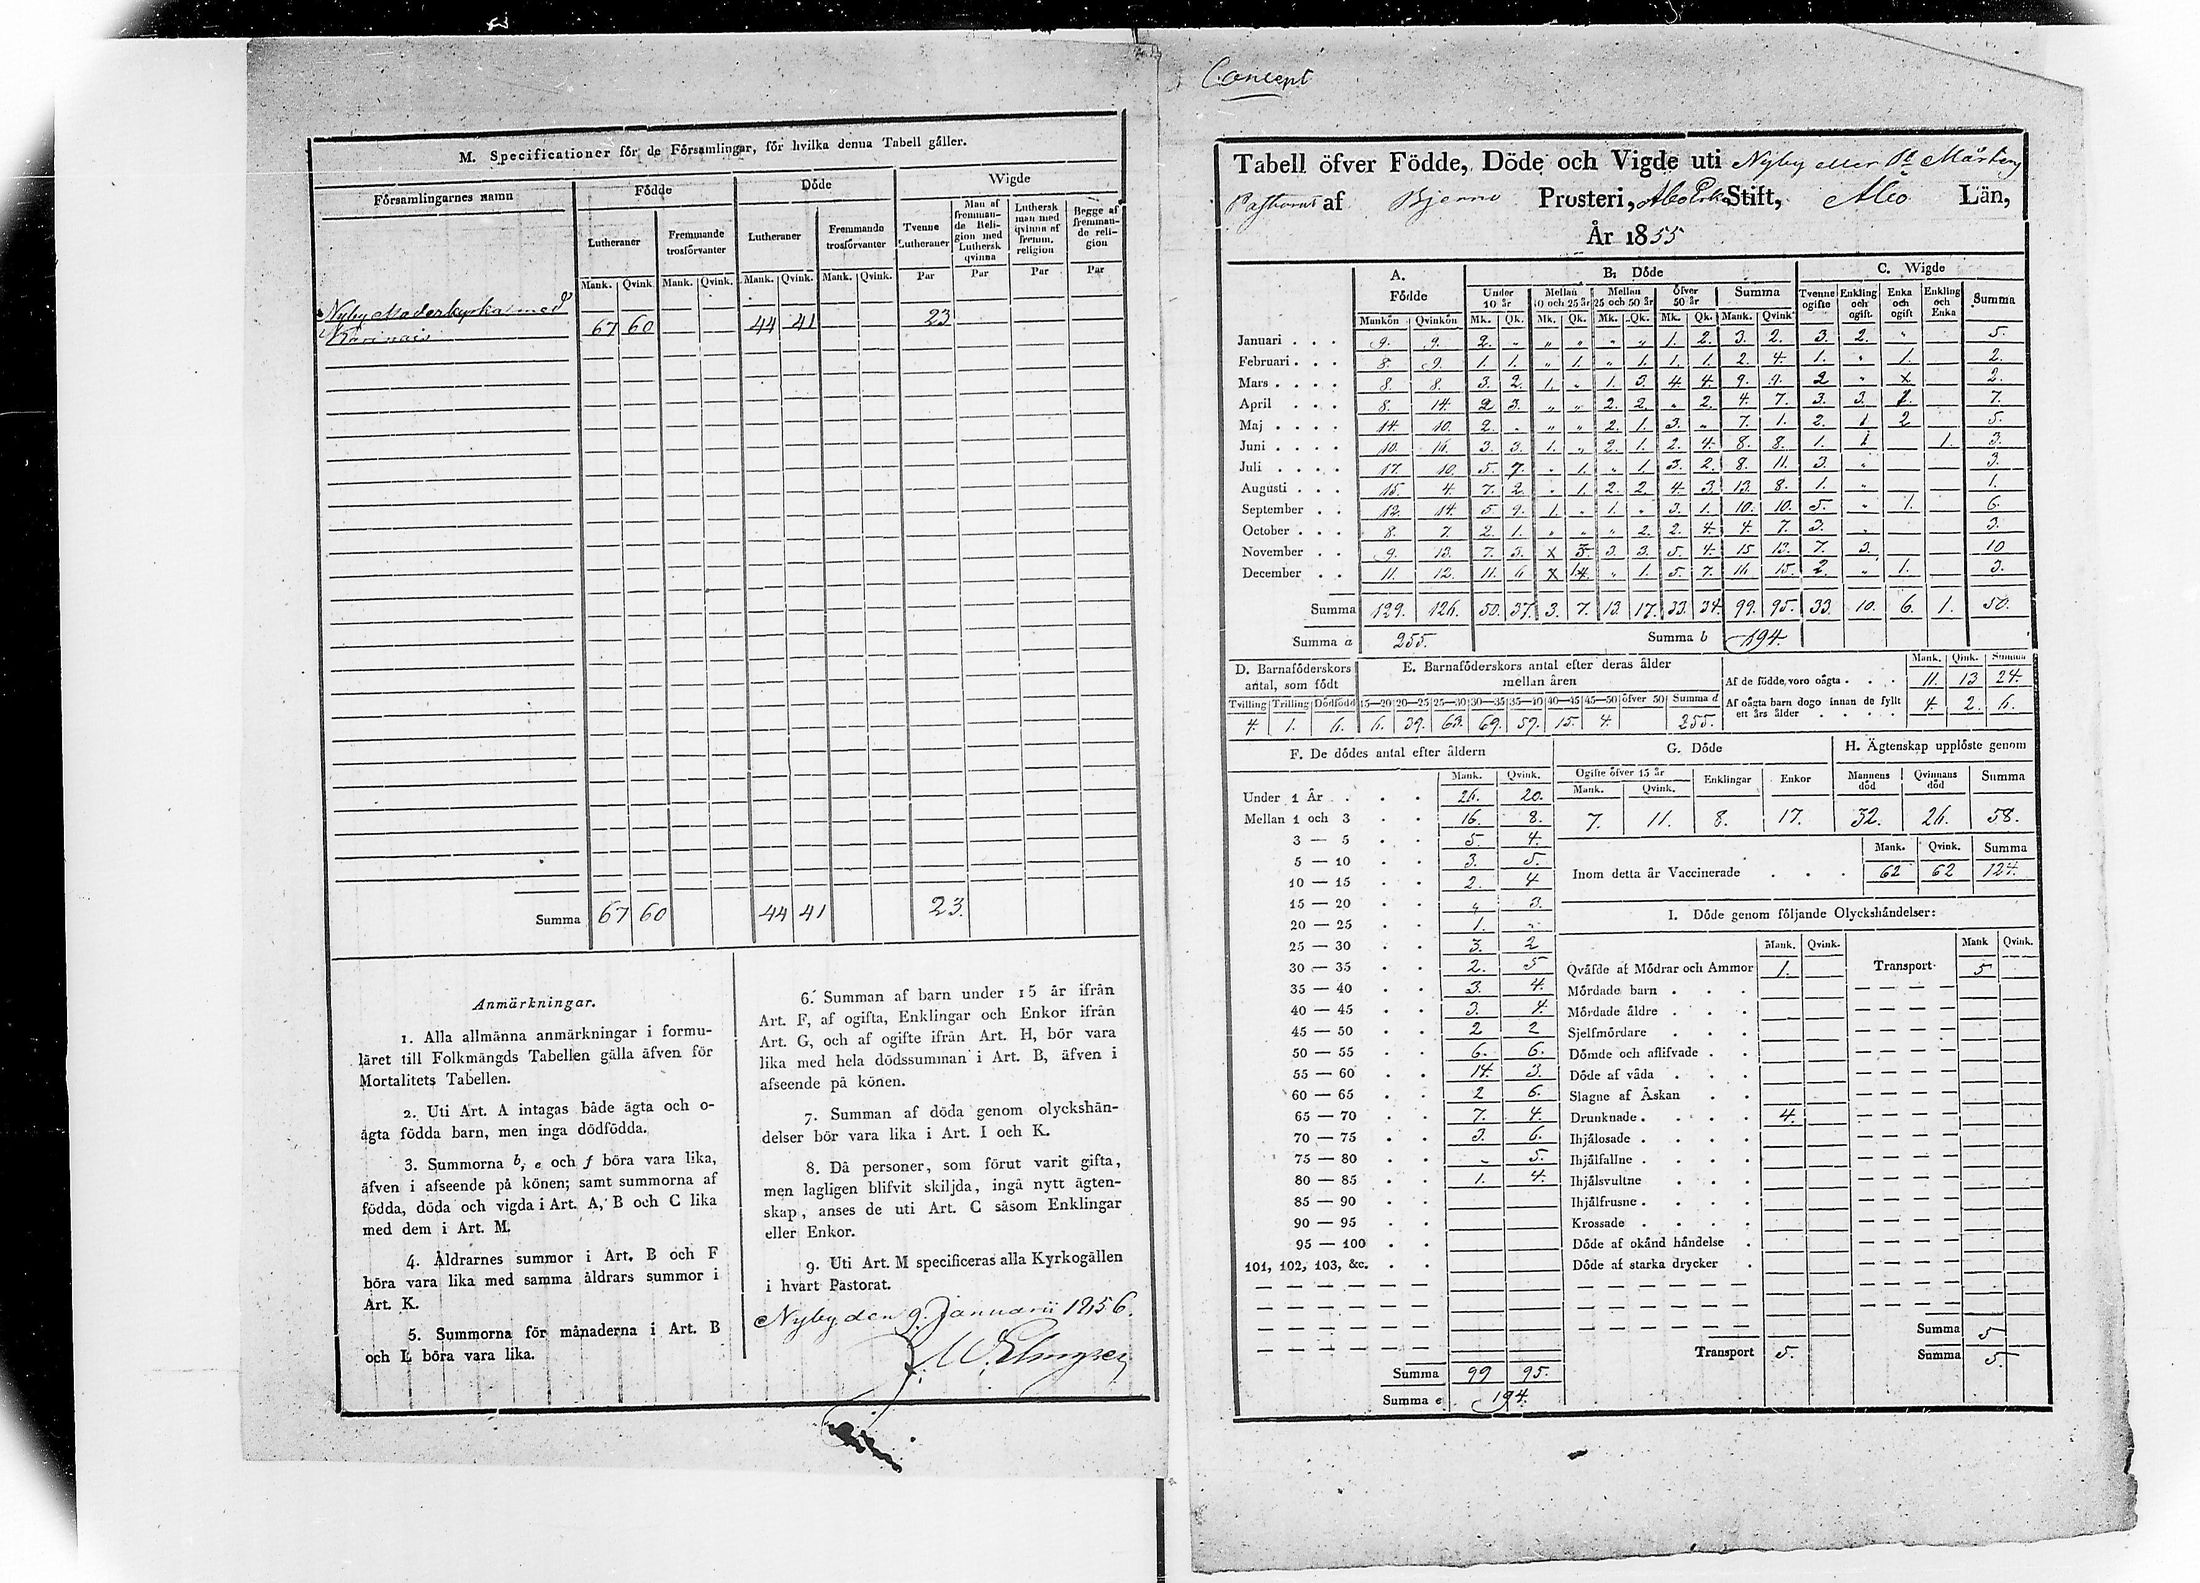 M. Specificationer för de Församlingar, för hvilka denna Tabell gäller.
Församlingarnes namn | Födde | Döde | Wigde
Lutheraner | Fremmande trosförvanter | Lutheraner | Fremmande trosförvanter | Tvenne Lutheraner | Man af fremmande Religion med Luthersk qvinna | Luthersk man med qvinna af fremm. religion | Begge af fremmande religion
Mank. | Qvink. | Mank. | Qvink. | Mank. | Qvink. | Mank. | Qvink. | Par | Par | Par | Par
Nyby Moderkyrka med
Karinais | 67 | 60 | 44 | 41 | 23
Summa | 67 | 60 | 44 | 41 | 23.
Anmärkningar.
1. Alla allmänna anmärkningar i formu-
läret till Folkmängds Tabellen gälla äfven för
Mortalitets Tabellen.
2. Uti Art. A intagas både ägta och o-
ägta födda barn, men inga dödfödda.
3. Summorna b, e och f böra vara lika,
äfven i afseende på könen; samt summorna af
födda, döda och vigda i Art. A, B och C lika
med dem i Art. M.
4. Åldrarnes summor i Art. B och F
böra vara lika med samma åldrars summor i
Art. K.
5. Summorna för månaderna i Art. B
och L böra vara lika.
6. Summan af barn under 15 år ifrån
Art. F, af ogifta, Enklingar och Enkor ifrån
Art. G, och af ogifte ifrån Art. H, bör vara
lika med hela dödssumman i Art. B, äfven i
afseende på könen.
7. Summan af döda genom olyckshän-
delser bör vara lika i Art. I och K.
8. Då personer, som förut varit gifta,
men lagligen blifvit skiljda, ingå nytt ägten-
skap, anses de uti Art. C såsom Enklingar
eller Enkor.
9. Uti Art. M specificeras alla Kyrkogällen
i hvart Pastorat.
Nyby den 9. Januarii 1856.
Concept
Tabell öfver Födde, Döde och Vigde uti Nyby eller St Mårtens
Pastorat af Bjerno Prosteri, Åbo Erke Stift, Åbo Län,
År 1855
A. Födde | B. Döde | C. Wigde
Under 10 år | Mellan 10 och 25 år | Mellan 25 och 50 år | Öfver 50 år | Summa | Tvenne ogifte | Enkling och ogift. | Enka och ogift | Enkling och Enka | Summa
Mankön | Qvinkön | Mk. | Qk. | Mk. | Qk. | Mk. | Qk. | Mk. | Qk. | Mank. | Qvink
Januari . . . 9. 9. 2. " " " " " 1. 2. 3. 2. 3. 2. " 5.
Februari . . . 8. 9. 1. 1. " 1. " 1. 1. 1. 2. 4. 1. " 1. 2.
Mars . . . . 8. 8. 3. 2. 1. " 1. 3. 4. 4. 9. 9. 2 " 2.
April . . . 8. 14. 2 3. " " 2. 2. " 2. 4. 7. 3. 3. 7.
Maj . . . . 14. 10. 2. " " " 2. 1. 3. " 7. 1. 2. 1 2 5.
Juni . . . . 10. 16. 3. 3. 1. " 2. 1. 2. 4. 8. 8. 1. 1 1. 3.
Juli . . . . 17. 10. 5. 7. " 1. " 1. 3. 2. 8. 11. 3. " 3.
Augusti . . . 15. 4. 7. 2. " 1. 2. 2. 4. 3. 13. 8. 1. " 1.
September . . 12. 14. 5 9. 1. " 1. " 3. 1. 10. 10. 5. " 1. 6.
October . . . 8. 7. 2. 1. " " " 2. 2. 4. 4. 7. 3. " 3.
November . . 9. 13. 7. 3. x 3. 3. 3. 5. 4. 15 13. 7. 3. 10
December . . 11. 12. 11. 6 x " 1. 5. 7. 16 15. 2. " 1. 3.
Summa 129. 126. 50. 37. 3. 7. 13. 17. 33. 34. 99. 95. 33. 10. 6. 1. 50.
Summa a 255. Summa b 194.
D. Barnaföderskors antal, som födt
Tvilling | Trilling | Dödfödd
4. 1. 6.
E. Barnaföderskors antal efter deras ålder mellan åren
15—20 | 20—25 | 25—30 | 30—35 | 35—40 | 40—45 | 45—50 | öfver 50 | Summa d
6. 39. 63. 69. 59. 15. 4. 255.
Mank. | Qink. | Summa
Af de födde, voro oägta . . . 11. 13 24.
Af oägta barn dogo innan de fyllt
ett års ålder . . . . 4. 2. 6.
F. De dödes antal efter åldern
Mank. | Qvink.
Under 1 År . . . 26. 20.
Mellan 1 och 3 . . 16. 8.
3 — 5 . . 5. 4.
5 — 10 . . 3. 5.
10 — 15 . . 2. 4
15 — 20 . . " 3.
20 — 25 . . 1. "
25 — 30 . . 3. 2
30 — 35 . . 2. 5
35 — 40 . . 3. 4.
40 — 45 . . 3. 4.
45 — 50 . . 2 2
50 — 55 . . 6. 6.
55 — 60 . . 14. 3.
60 — 65 . . 2 6.
65 — 70 . . 7. 4.
70 — 75 . . 3. 6.
75 — 80 . . " 5.
80 — 85 . . 1. 4.
85 — 90 . .
90 — 95 . .
95 — 100 . .
101, 102, 103, &c. . .
Summa 99 95.
Summa e 194.
G. Döde
Ogifte öfver 15 år | Enklingar | Enkor
Mank. | Qvink.
7. 11. 8. 17.
H. Ägtenskap upplöste genom
Mannens död | Qvinnans död | Summa
32. 26. 58.
Mank. | Qvink. | Summa
Inom detta år Vaccinerade . . . 62 62 124.
I. Döde genom följande Olyckshändelser:
Mank. | Qvink. | Mank | Qvink.
Qväfde af Mödrar och Ammor 1. Transport 5
Mördade barn . . .
Mördade äldre . . .
Sjelfmördare . . .
Dömde och aflifvade . .
Döde af våda . . .
Slagne af Åskan . .
Drunknade . . . . 4.
Ihjälosade . . . .
Ihjälfallne . . . .
Ihjälsvultne . . .
Ihjälfrusne . . . .
Krossade . . . .
Döde af okänd händelse .
Döde af starka drycker .
Summa 5
Transport 5. Summa 5.